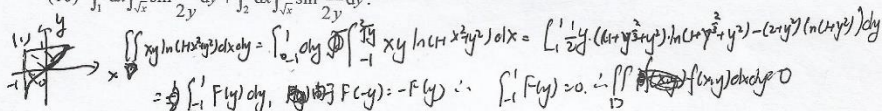 ∫₁ dx∫_{√x} sin 2y dy + ∫₂ dx∫_{√x} sin 2y dy.
(1,1) y
-1 0 x
∬_D xy ln(1+x²+y²)dxdy = ∫_{-1}^{1} dy ∫_{-1}^{∛y} xy ln(1+x²+y²)dx = ∫_{-1}^{1} ½y·((1+y^{2/3}+y²)·ln(1+y^{2/3}+y²)-(2+y²)ln(2+y²))dy
= ½∫_{-1}^{1} F(y)dy, 由于 F(-y)=-F(y) ∴ ∫_{-1}^{1} F(y)=0. ∴ ∬_D f(x,y)dxdy=0